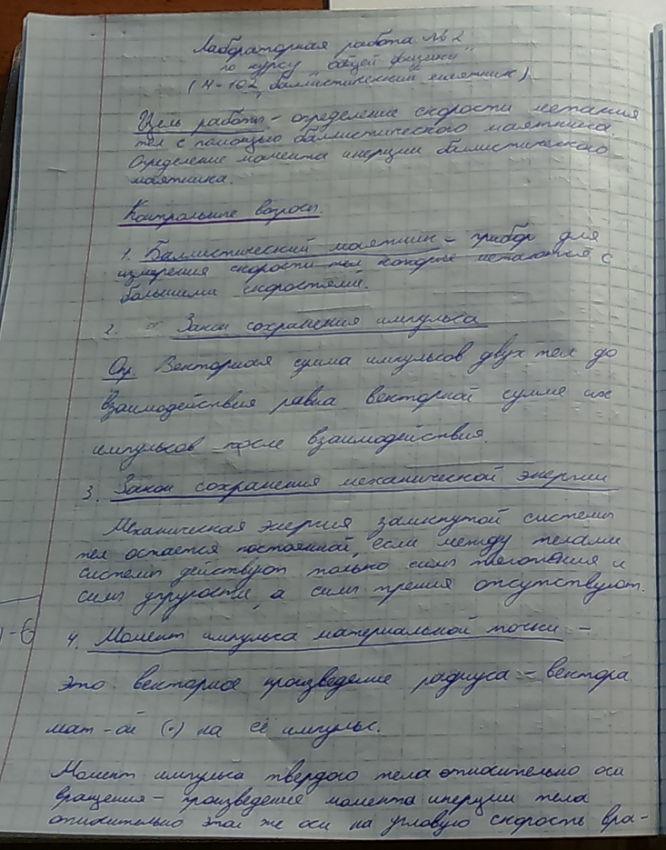 Лабораторная работа №2
по курсу "общей физики"
(М-102 „баллистический маятник")
Цель работы - определение скорости метания
тел с помощью баллистического маятника.
Определение момента инерции баллистического
маятника.
Контрольные вопросы.
1. Баллистический маятник - прибор для
измерения скорости тел которые метаются с
большими скоростями.
2. Закон сохранения импульса
Опр Векторная сумма импульсов двух тел до
взаимодействия равна векторной сумме их
импульсов после взаимодействия
3. Закон сохранения механической энергии
Механическая энергия замкнутой системы
тел остается постоянной, если между телами
системы действуют только силы тяготения и
силы упругости, а силы трения отсутствуют.
4. Момент импульса материальной точки -
это векторное произведение радиуса - вектора
мат-ой (•) на её импульс.
Момент импульса твердого тела относительно оси
вращения - произведение момента инерции тела
относительно этой же оси на угловую скорость вра-